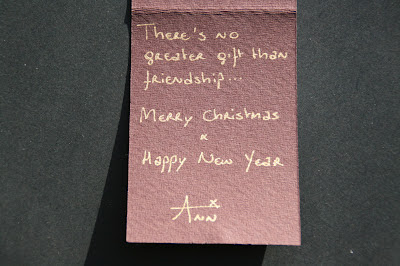 There's no
greater gift than
friendship...
Merry Christmas
x
Happy New Year
x
Ann